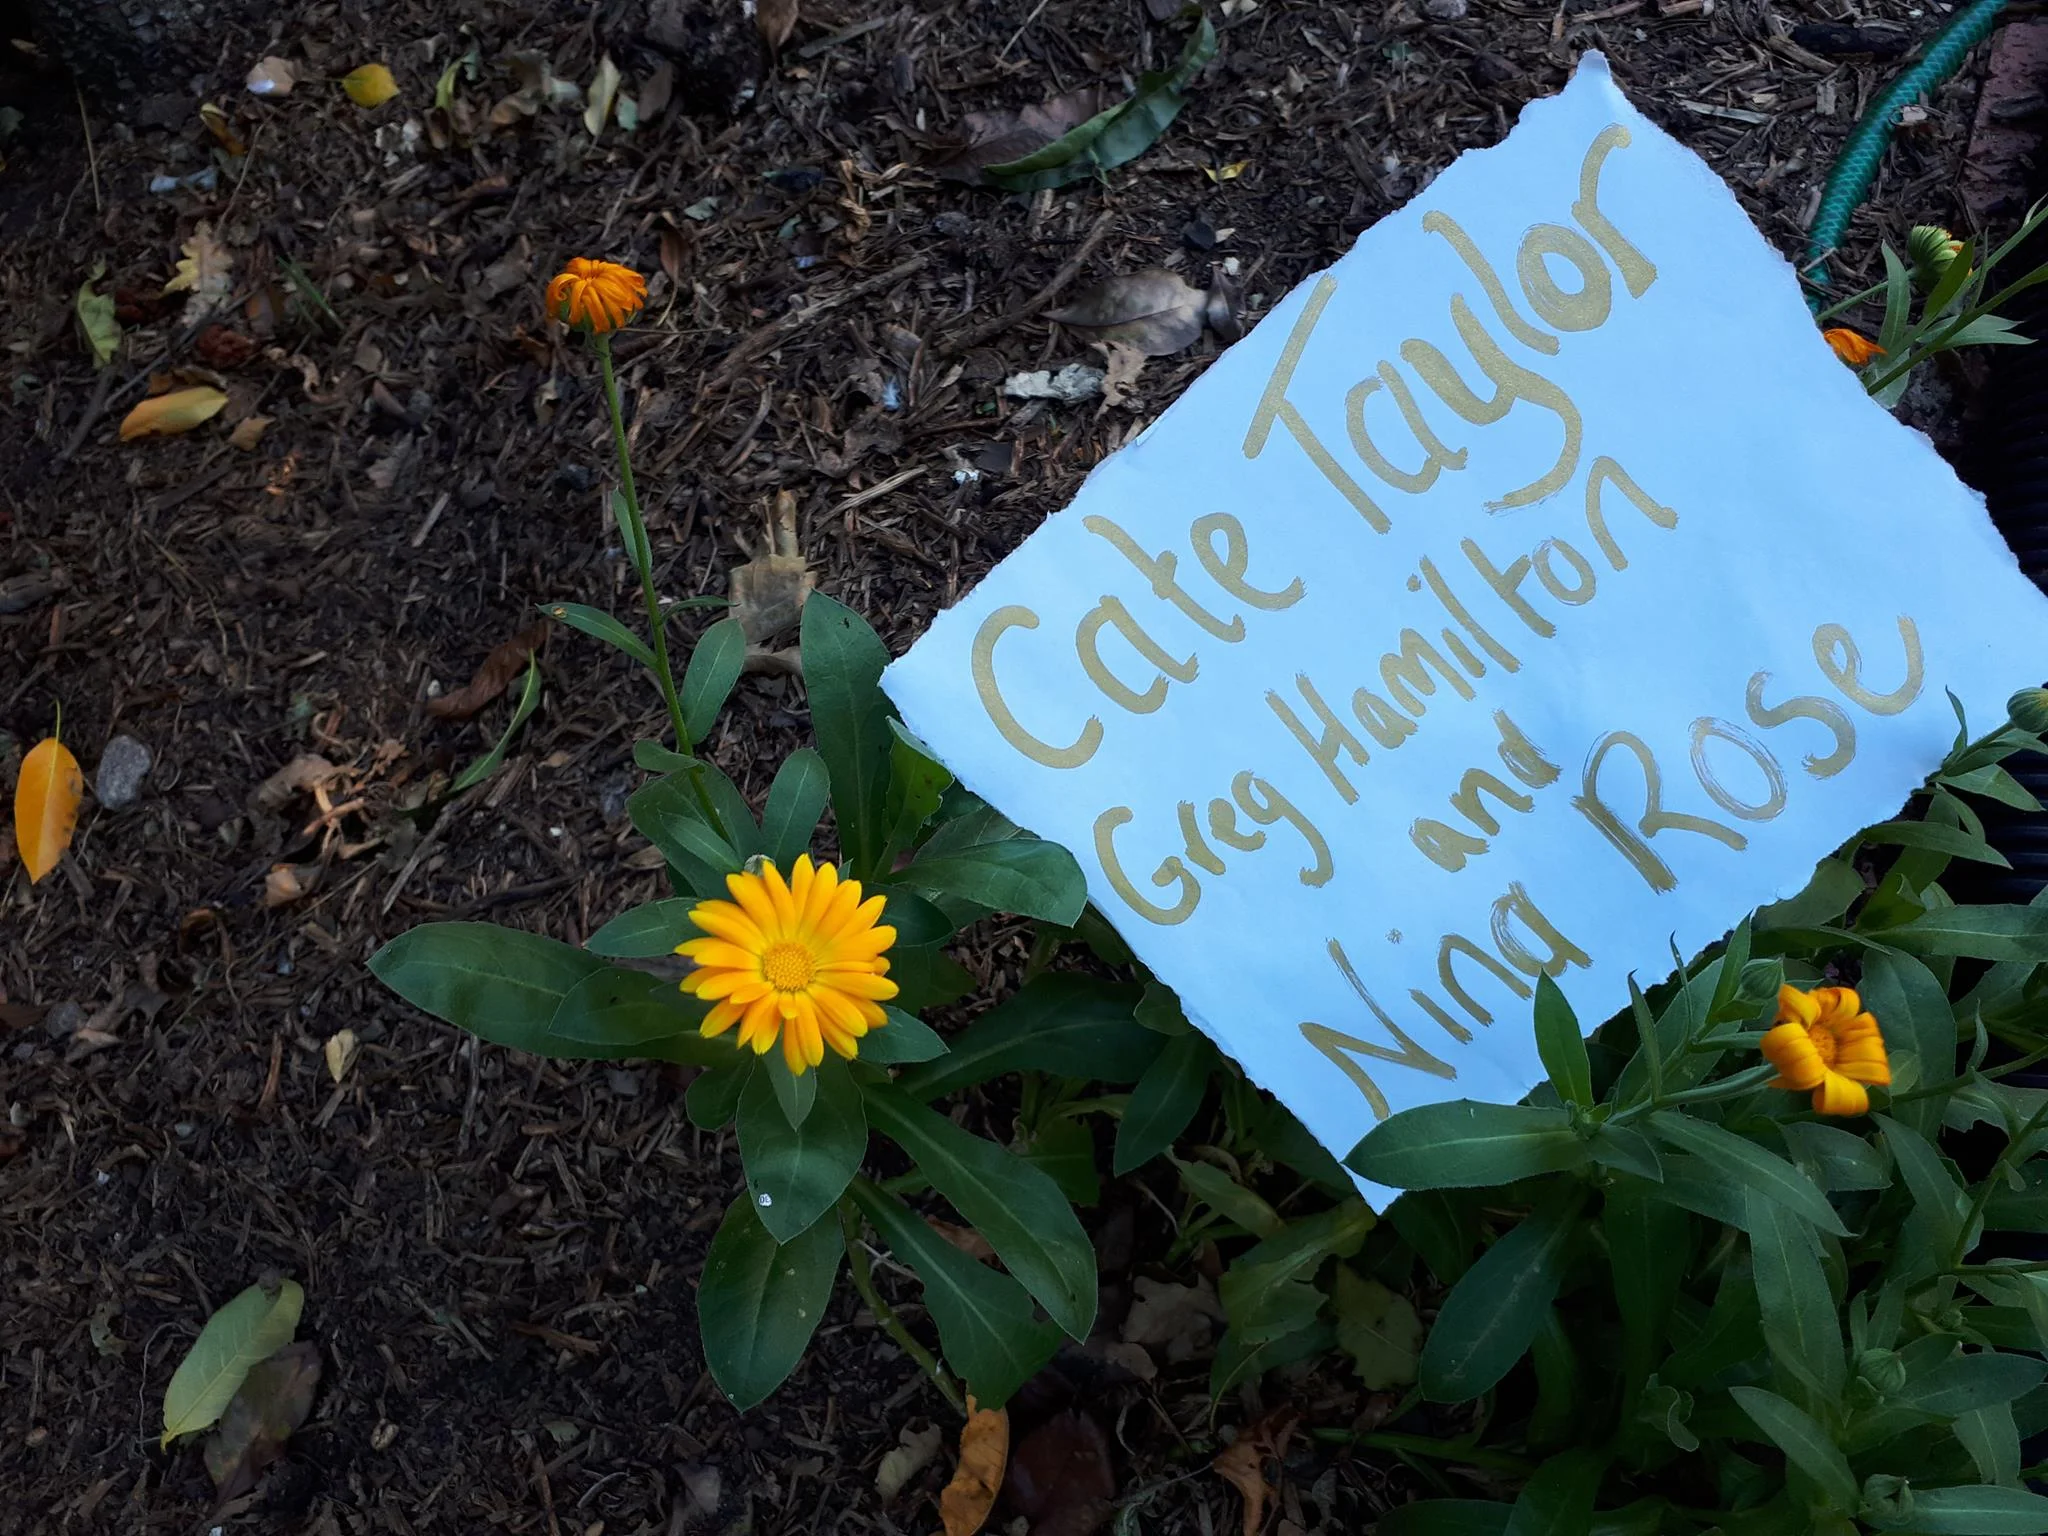 Cate Taylor
Greg Hamilton
and
Nina Rose